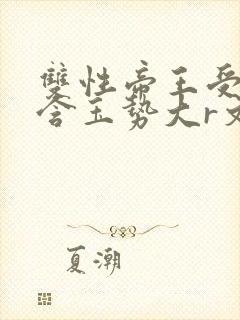 雙性帝王受
含玉势大r文
夏潮